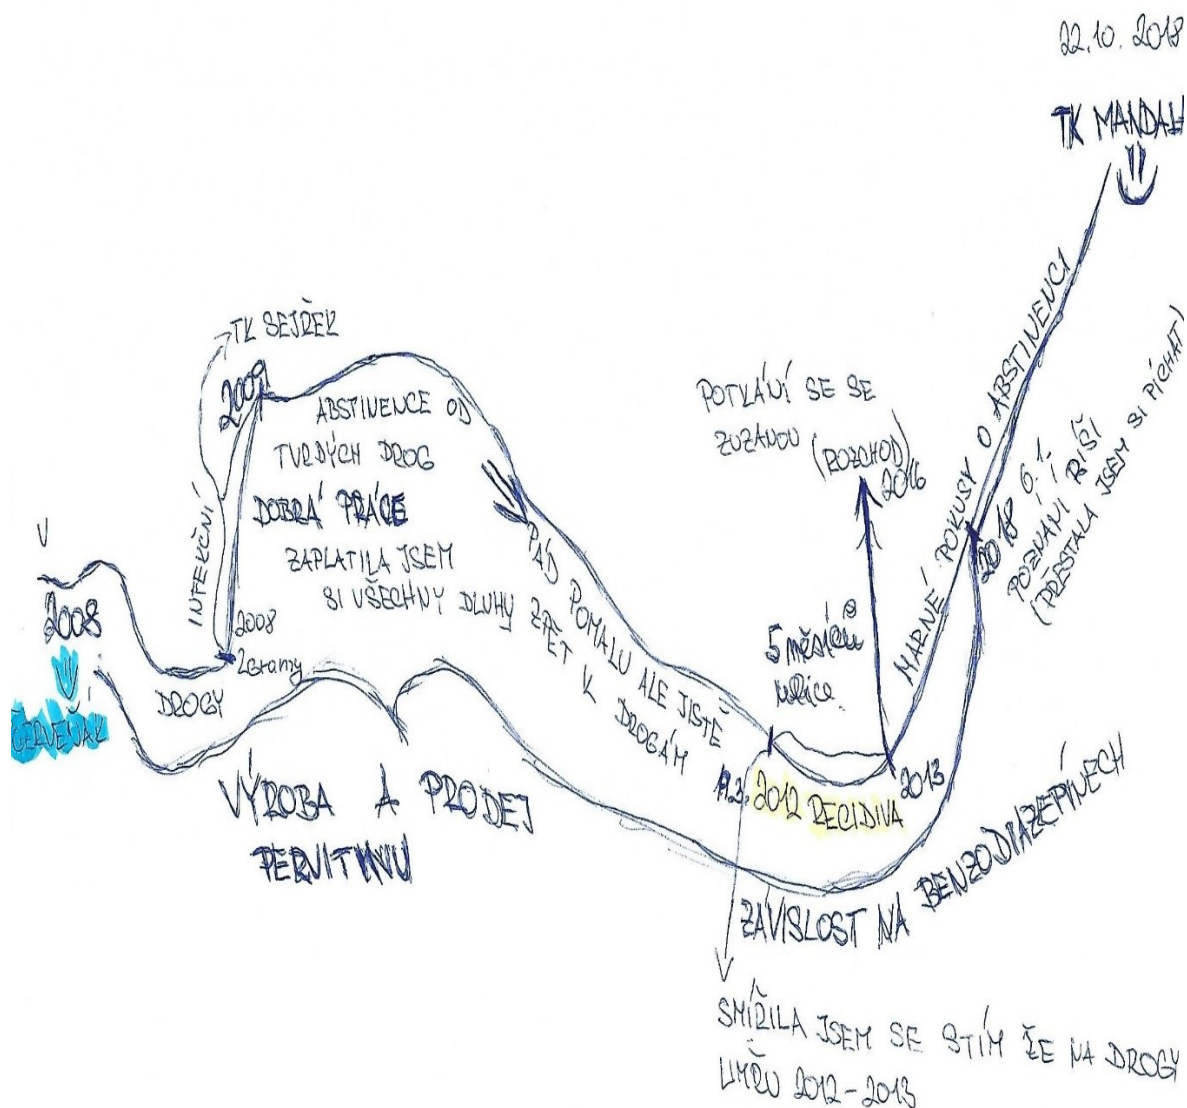 22.10.2018
TK MANDALA
TK SEJŘEK
2009
ABSTINENCE OD
TVRDÝCH DROG
DOBRÁ PRÁCE
ZAPLATILA JSEM
SI VŠECHNY DLUHY
INFEKČNÍ
V
2008
ČERVEŇÁK
2008
2Gramy
DROGY
VÝROBA A PRODEJ
PERVITINU
PÁD POMALU ALE JISTĚ
ZPĚT K DROGÁM
POTKÁNÍ SE SE
ZUZANOU (ROZCHOD)
2016
5 měsíců
ulice
19.3. 2012 RECIDIVA
2013
MARNÉ POKUSY O ABSTINENCI
2018 6.1.
POZNÁNÍ RIŠI
(PŘESTALA JSEM SI PÍCHAT)
ZÁVISLOST NA BENZODIAZEPINECH
SMÍŘILA JSEM SE STÍM ŽE NA DROGY
UMŘU 2012-2013